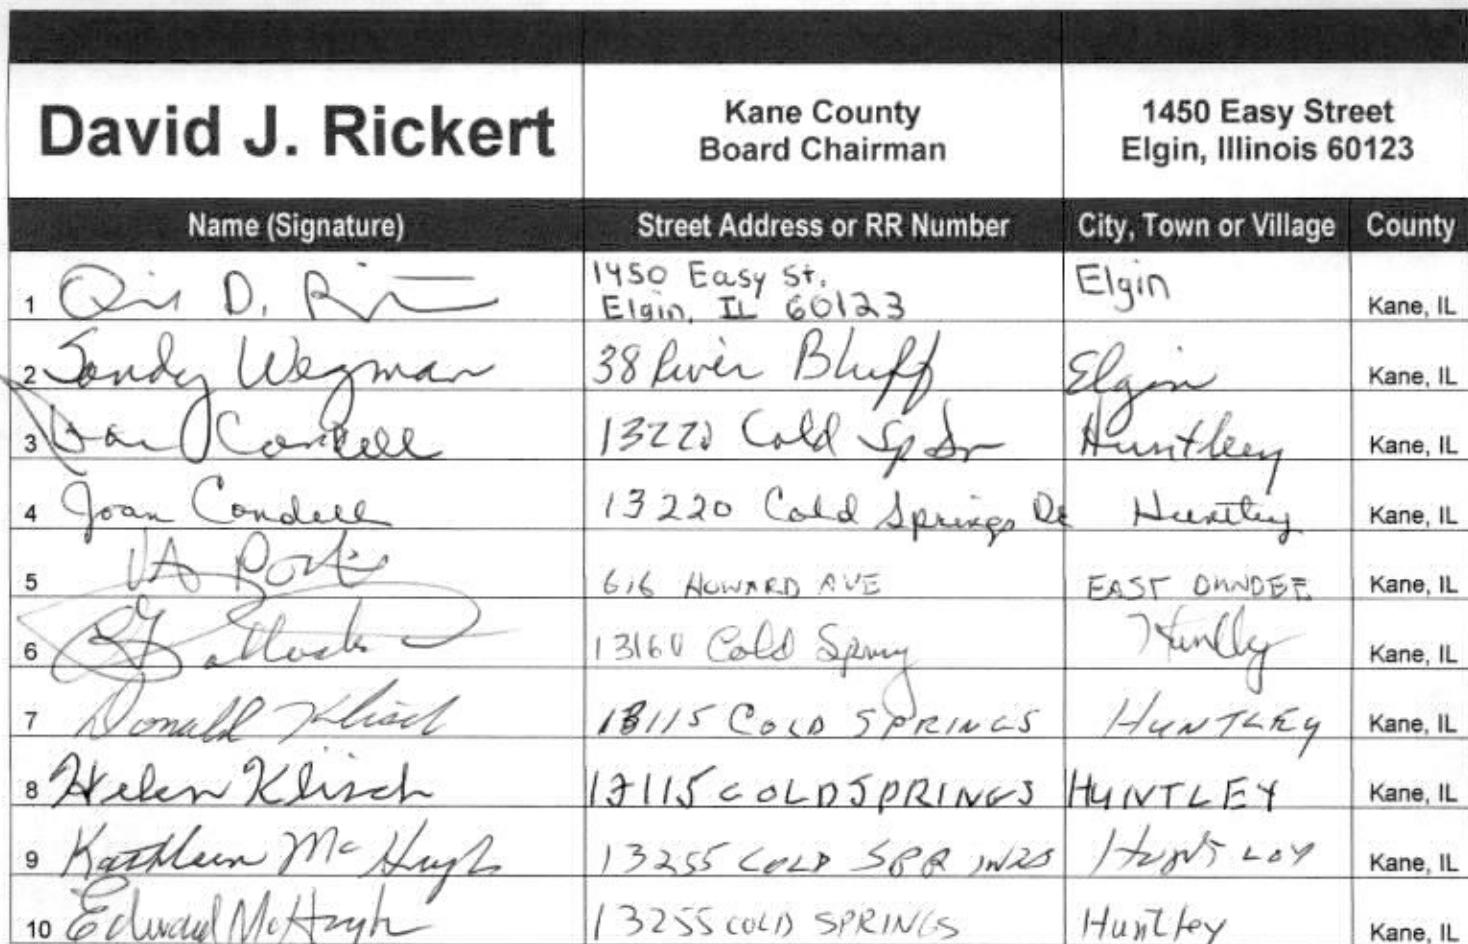 David J. Rickert
Kane County
Board Chairman
1450 Easy Street
Elgin, Illinois 60123
Name (Signature) Street Address or RR Number City, Town or Village County
1450 Easy St.
1 D. Elgin, IL 60123 Elgin Kane, IL
2 Sandy Wegman 38 River Bluff Elgin Kane, IL
3 Condell 13220 Cold Sp Dr Huntley Kane, IL
4 Joan Condell 13220 Cold Springs Dr Huntley Kane, IL
5 616 HOWARD AVE EAST DUNDEE Kane, IL
6 13160 Cold Spring Huntley Kane, IL
7 Donald Klisch 13115 COLD SPRINGS HUNTLEY Kane, IL
8 Helen Klisch 13115 COLD SPRINGS HUNTLEY Kane, IL
9 Kathleen McHugh 13255 COLD SPRINGS Kane, IL
10 Edward McHugh 13255 COLD SPRINGS Huntley Kane, IL